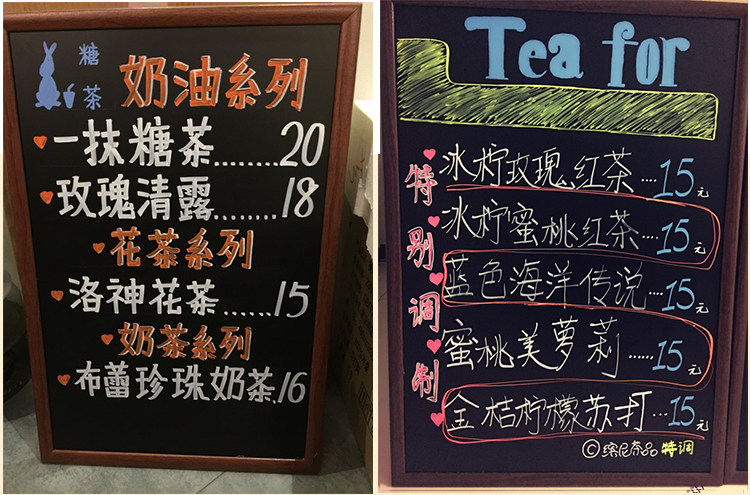 糖茶
奶油系列
一抹糖茶........20
玫瑰清露........18
花茶系列
洛神花茶......15
奶茶系列
布蕾珍珠奶茶.16
Tea for
特别调制
冰柠玫瑰红茶....15元
冰柠蜜桃红茶....15元
蓝色海洋传说...15元
蜜桃美萝莉......15元
金桔柠檬苏打...15元
©缤尼茶品特调